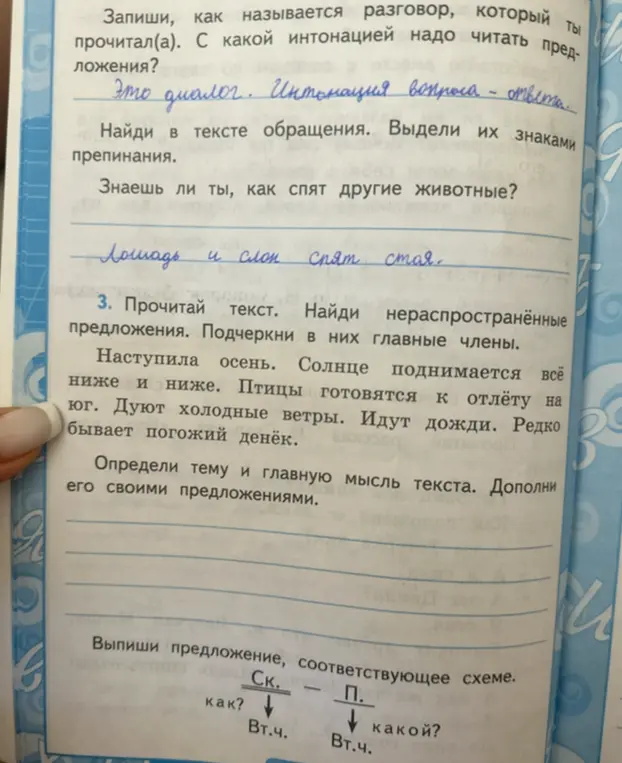 Запиши, как называется разговор, который ты
прочитал(а). С какой интонацией надо читать пред-
ложения?
Это диалог. Интонация вопроса - ответа.
Найди в тексте обращения. Выдели их знаками
препинания.
Знаешь ли ты, как спят другие животные?
Лошадь и слон спят стоя.
3. Прочитай текст. Найди нераспространённые
предложения. Подчеркни в них главные члены.
Наступила осень. Солнце поднимается всё
ниже и ниже. Птицы готовятся к отлёту на
юг. Дуют холодные ветры. Идут дожди. Редко
бывает погожий денёк.
Определи тему и главную мысль текста. Дополни
его своими предложениями.
Выпиши предложение, соответствующее схеме.
Ск. — П.
как? ↓ ↓ какой?
Вт.ч. Вт.ч.